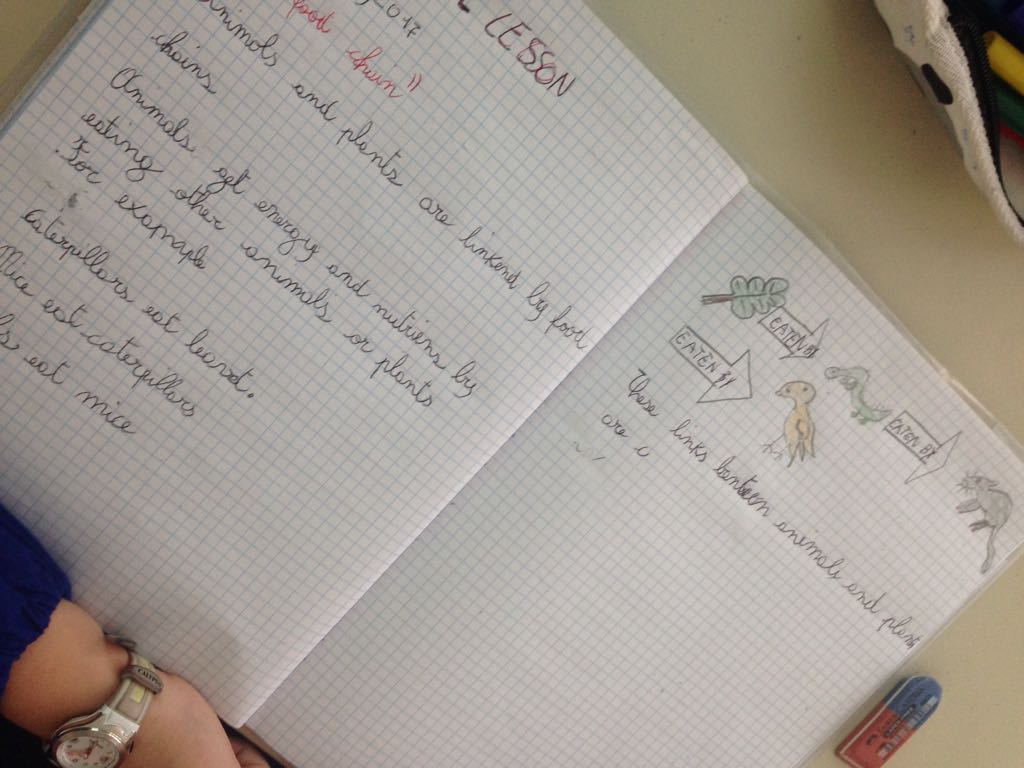 LESSON
2017
food chain"
animals and plants are linkend by food
chains
Animals get energy and nutriens by
eating other animals or plants
For example
Caterpillars eat leavat.
Mice eat caterpillars
eat mice
EATEN BY
EATEN BY
EATEN BY
These links banteen animals and plants
are
CALYPSO